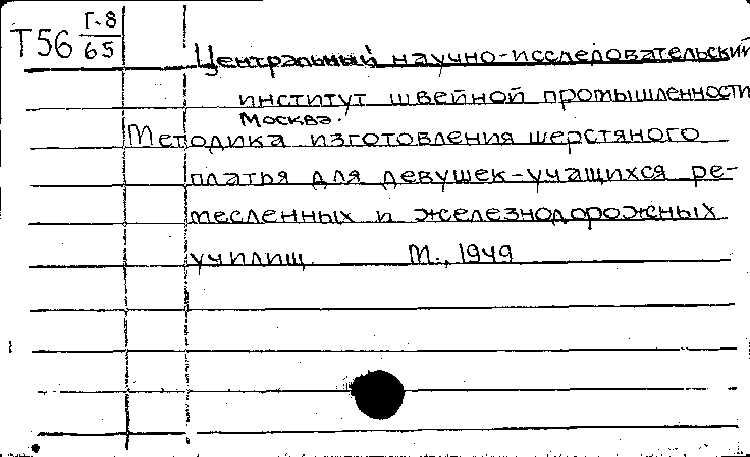 Т56 Г-8/65
Центральный научно-исследовательский
институт швейной промышленности
Москва.
Методика изготовления шерстяного
платья для девушек-учащихся ре-
месленных и железнодорожных
училищ. М., 1949